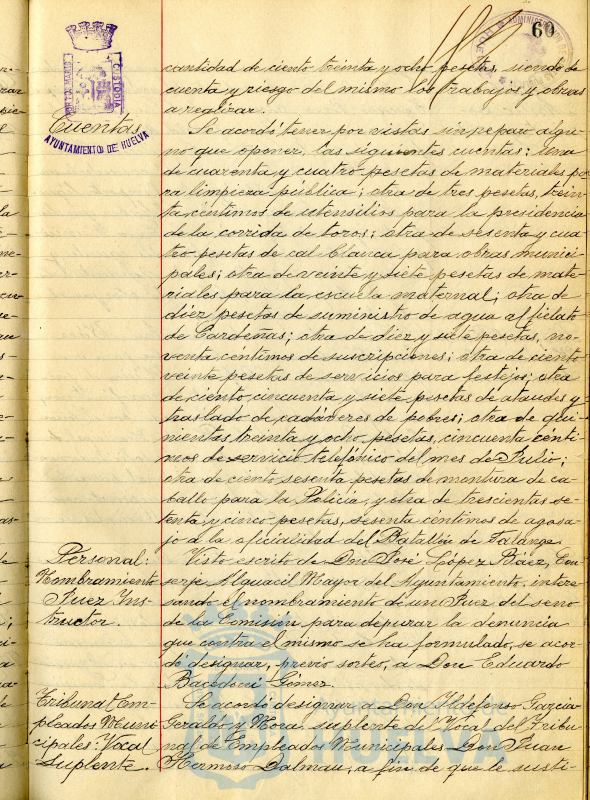 60
cantidad de ciento treinta y ocho pesetas, siendo de
cuenta y riesgo del mismo los trabajos y obras
a realizar.
Cuentas
AYUNTAMIENTO DE HUELVA
Se acordó tener por vistas sin reparo algu-
no que oponer, las siguientes cuentas: una
de cuarenta y cuatro pesetas de materiales pa
ra limpieza pública; otra de tres pesetas, trein-
ta céntimos de utensilios para la presidencia
de la corrida de toros; otra de sesenta y cua-
tro pesetas de cal blanca para obras munici-
pales; otra de veinte y siete pesetas de mate-
riales para la escuela maternal; otra de
diez pesetas de suministro de agua al fielato
de Cardeñas; otra de diez y siete pesetas, no-
venta céntimos de suscripciones; otra de ciento
veinte pesetas de servicios para festejos; otra
de ciento cincuenta y siete pesetas de ataudes y
traslado de cadáveres de pobres; otra de qui-
nientas treinta y ocho pesetas, cincuenta cénti-
mos de servicio telefónico del mes de Julio;
otra de ciento sesenta pesetas de montura de ca-
ballo para la Policía, y otra de trescientas se-
tenta y cinco pesetas, sesenta céntimos de agasa-
jo a la oficialidad del Batallón de Falange.
Personal:
Nombramiento
Juez Ins-
tructor.
Visto escrito de Don José López Báez, Con
serje Alguacil Mayor del Ayuntamiento, intere
sando el nombramiento de un Juez del seno
de la Comisión para depurar la denuncia
que contra el mismo se ha formulado, se acor-
dó designar, previo sorteo, a Don Eduardo
Bacedoni Gómez.
Tribunal Em-
pleados Muni-
cipales: Vocal
Suplente.
Se acordó designar a Don Ildefonso Garcia-
Geraldo y Mora, suplente del Vocal del Tribu-
nal de Empleados Municipales Don Juan
Hermoso Dalmau, a fin de que le susti-
HUELVA